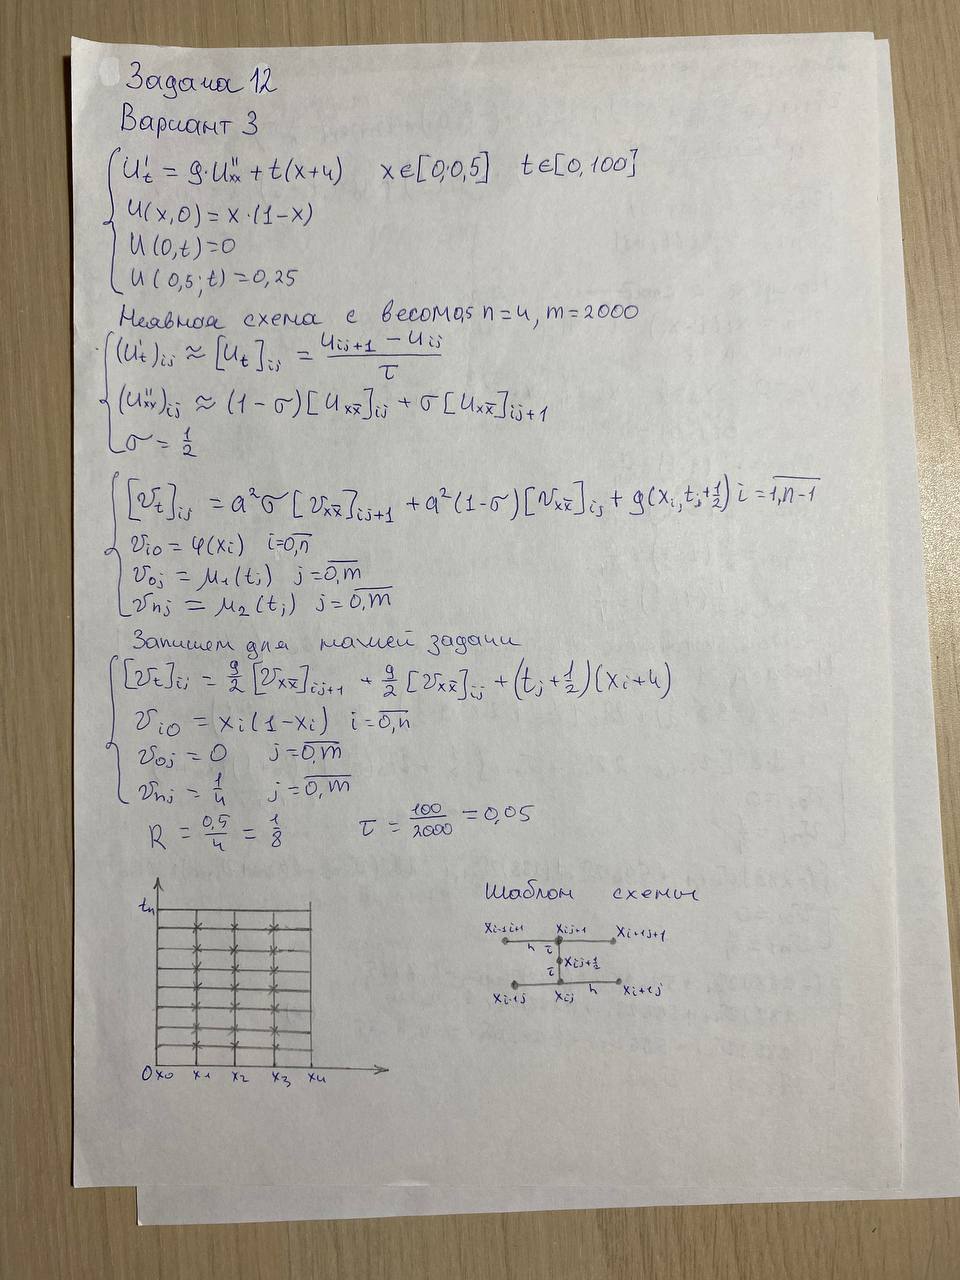 Задача 12
Вариант 3
u't = 9·u''xx + t(x+4) x∈[0;0,5] t∈[0,100]
u(x,0)=x·(1-x)
u(0,t)=0
u(0,5;t)=0,25
Неявная схема с весом 0,5 n=4, m=2000
(u't)ij ≈ [ut]ij = (uij+1 - uij)/τ
(u''xx)ij ≈ (1-σ)[uxx̄]ij + σ[uxx̄]ij+1
σ = 1/2
[vt]ij = a²σ[vxx̄]ij+1 + a²(1-σ)[vxx̄]ij + g(xi, tj+1/2) i=1,n-1
vi0 = φ(xi) i=0,n
v0j = μ1(tj) j=0,m
vnj = μ2(tj) j=0,m
Запишем для нашей задачи
[vt]ij = 9/2 [vxx̄]ij+1 + 9/2 [vxx̄]ij + (tj+1/2)(xi+4)
vi0 = xi(1-xi) i=0,n
v0j = 0 j=0,m
vnj = 1/4 j=0,m
R = 0,5/4 = 1/8 τ = 100/2000 = 0,05
Шаблон схемы
tn
xi-1i+1 xij+1 xi+1j+1
h τ
xij+1/2
τ
h
xi-1j xij xi+1j
0 x0 x1 x2 x3 x4